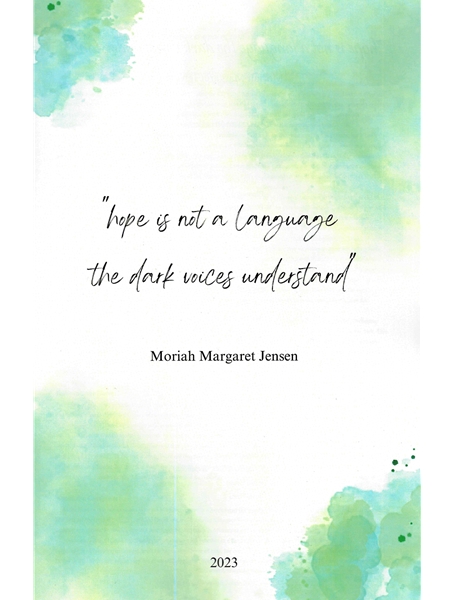 "hope is not a language
the dark voices understand"
Moriah Margaret Jensen
2023